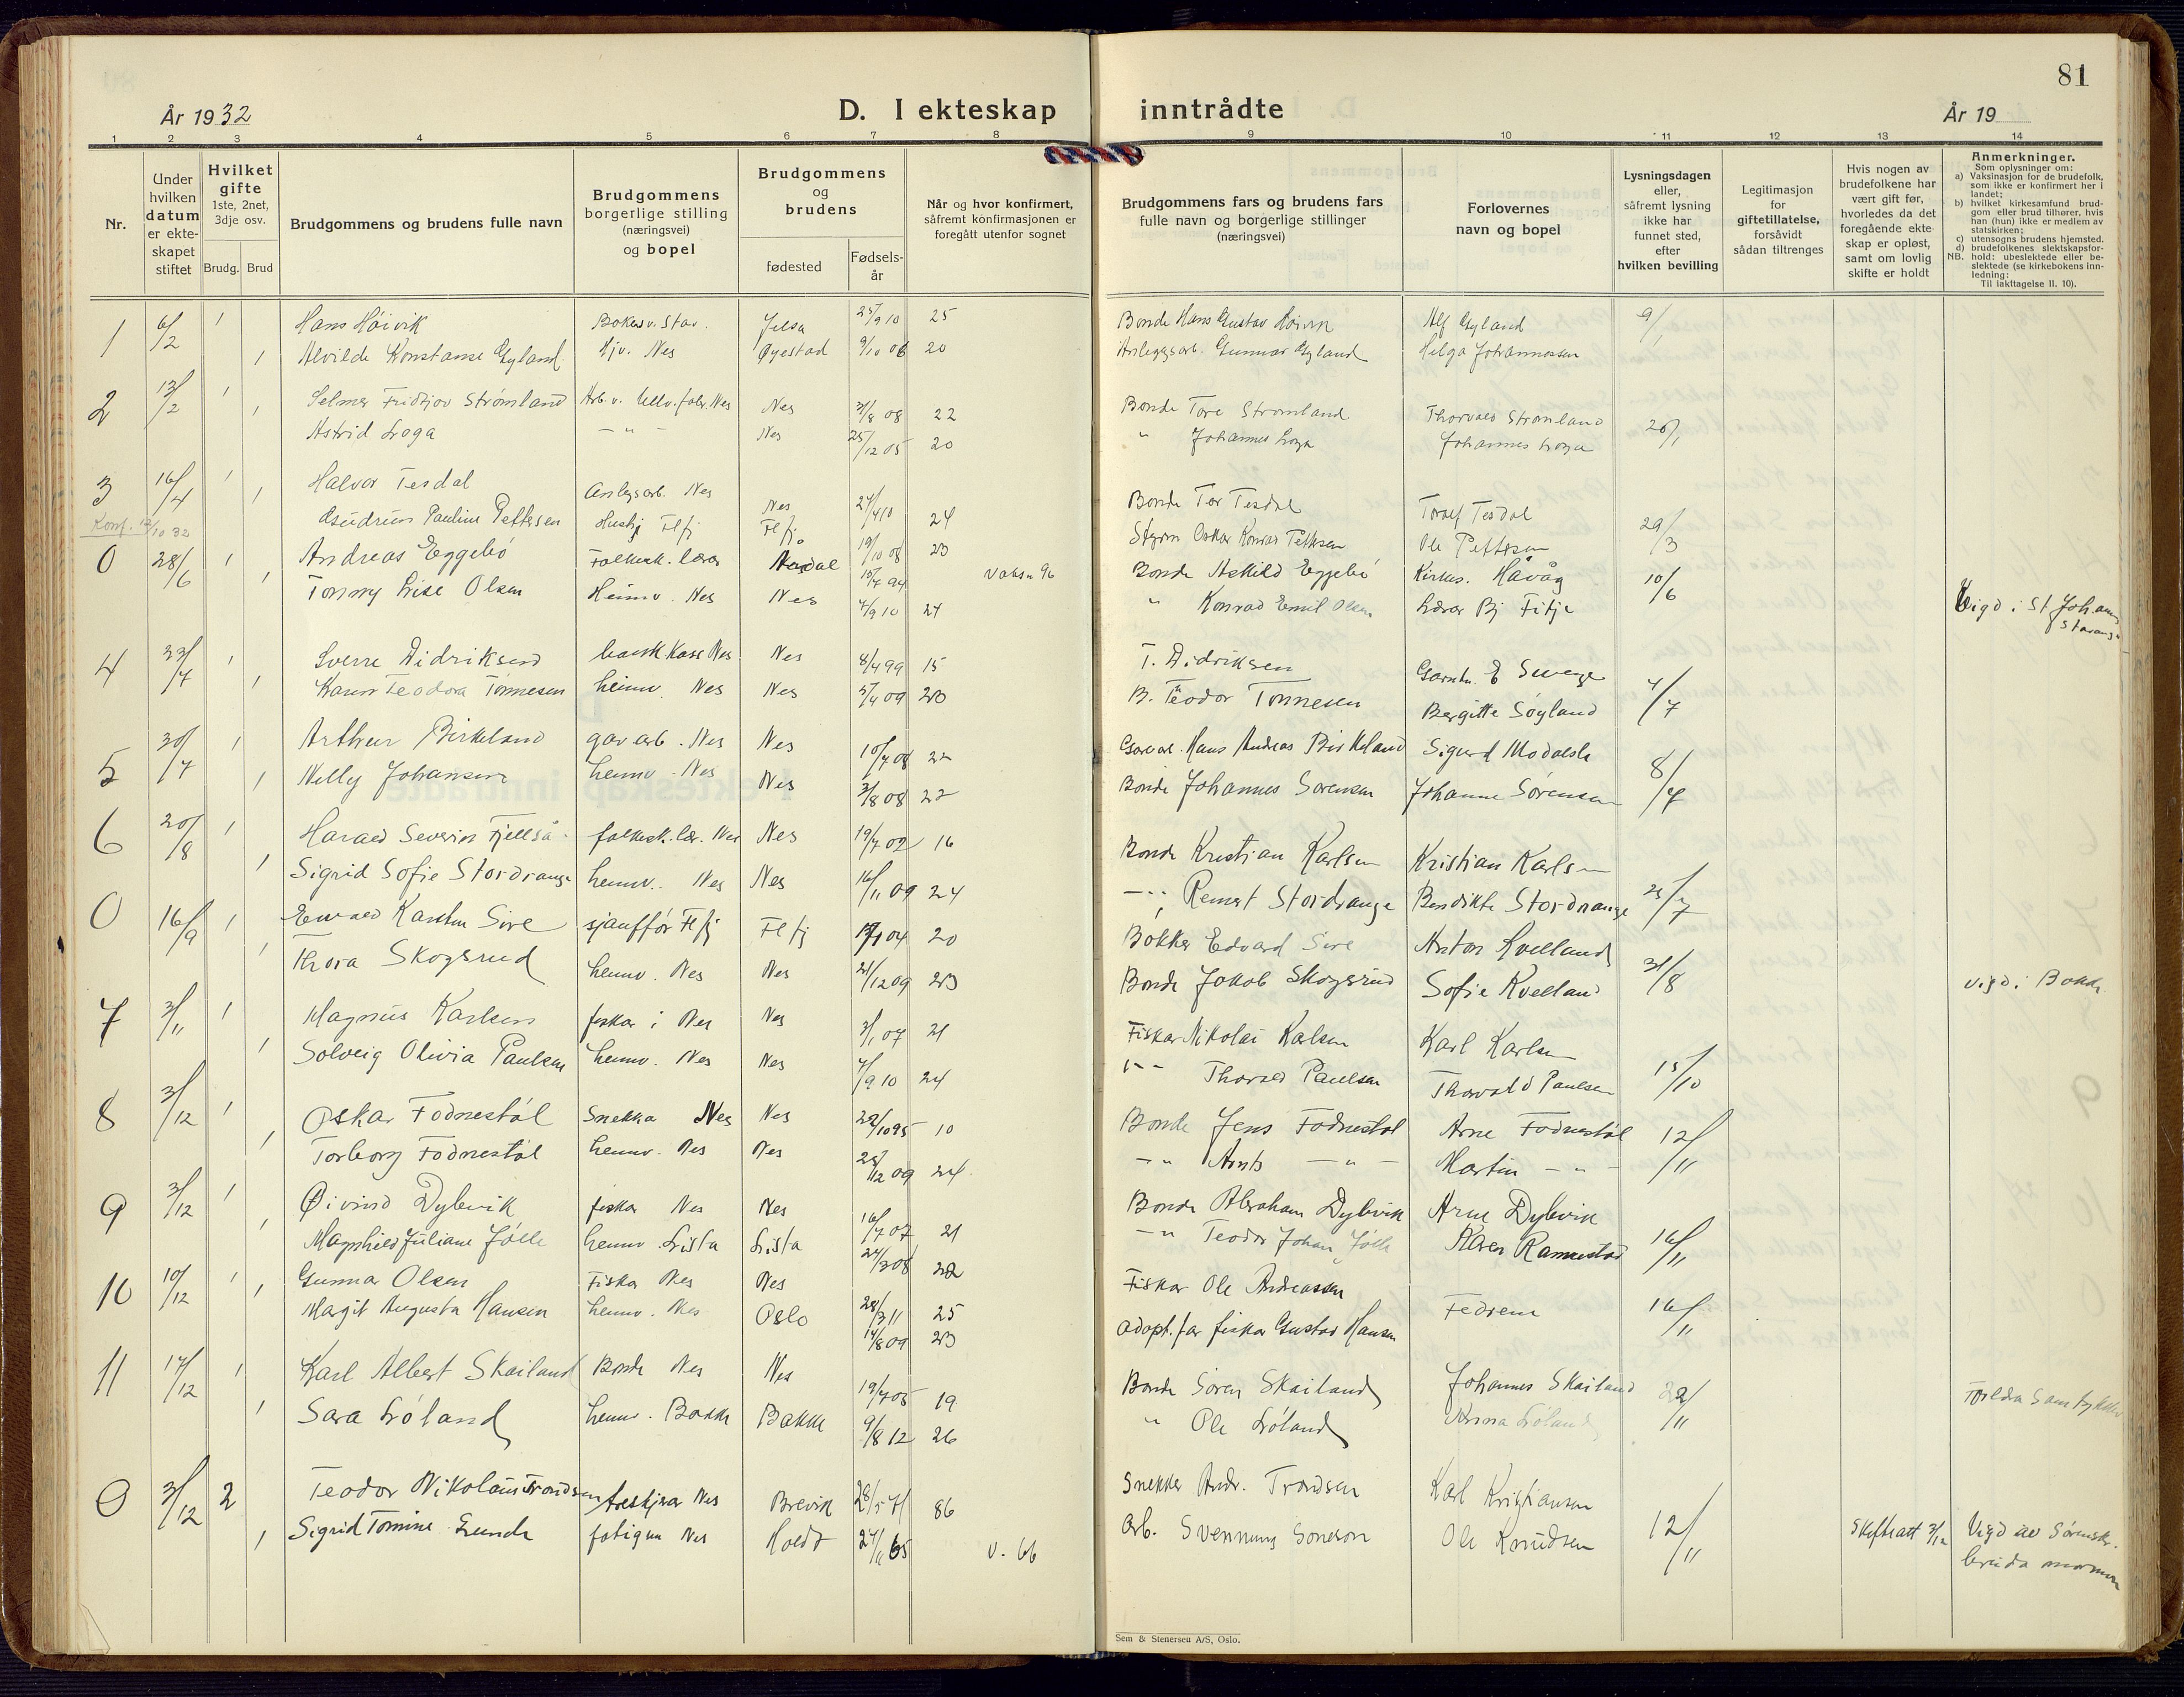 81
År 1932
D. I ekteskap inntrådte
År 19
1 2 3 4 5 6 7 8 9 10 11 12 13 14
Nr.
Under hvilken datum er ekteskapet stiftet
Hvilket gifte 1ste, 2net, 3dje osv.
Brudg. Brud
Brudgommens og brudens fulle navn
Brudgommens borgerlige stilling (næringsvei) og bopel
Brudgommens og brudens
fødested
Fødselsår
Når og hvor konfirmert, såfremt konfirmasjonen er foregått utenfor sognet
Brudgommens fars og brudens fars fulle navn og borgerlige stillinger (næringsvei)
Forlovernes navn og bopel
Lysningsdagen eller, såfremt lysning ikke har funnet sted, efter hvilken bevilling
Legitimasjon for giftetillatelse, forsåvidt sådan tiltrenges
Hvis nogen av brudefolkene har vært gift før, hvorledes da det foregående ekteskap er opløst, samt om lovlig skifte er holdt
Anmerkninger.
Som oplysninger om:
a) Vaksinasjon for de brudefolk, som ikke er konfirmert her i landet;
b) hvilket kirkesamfund brudgom eller brud tilhører, hvis han (hun) ikke er medlem av statskirken;
c) utensogns brudens hjemsted.
d) brudefolkenes slektskapsforhold: ubeslektede eller beslektede (se kirkebokens innledning:
NB. Til iakttagelse II. 10).
1 6/2 1 Hans Höivik Jelsa 25/9 10 25 Bonde Hans Gustav Höivik Alf Gyland 9/1
1 Alvilde Konstanse Gyland Hjv. Nes Øyestad 9/10 06 20 Anleggsarb. Gunnar Gyland Helga Johannessen
2 13/2 1 Selmer Fridtjov Strömland Arb. v. Ullv.fabr. Nes Nes 31/8 08 22 Bonde Tore Strömland Thorvald Strömland 26/1
1 Astrid Loga - " - Nes 25/12 05 20 " Johannes Loga Johannes Loga
3 16/4 1 Halvor Tesdal Anlegsarb. Nes Nes 10 24 Bonde Tor Tesdal Toralf Tesdal 29/3
Konf. 12/10 32
1 Gudrun Pauline Pettersen Hushj Flfj Flfj. 19/10 08 23 Oskar Konrad Pettersen Ole Pettersen
0 28/6 1 Andreas Eggebö Folkesk. lærer Årdal 15/7 94 vaks. 96 Bonde Askild Eggebö Kirkes. Håvåg 10/6
1 Tommy Lise Olsen Heimv. Nes Nes 4/9 10 24 " Konrad Emil Olsen Lærer Bj Fitje Vigd i St Johannes Stavang
4 23/7 1 Sverre Didriksen Nes Nes 8/4 99 15 T. Didriksen 4/7
1 Karen Teodora Tönnesen heimv. Nes Nes 5/4 09 23 B. Teodor Tönnesen Bergitte Söyland
5 30/7 1 Arthur Birkeland garvarb. Nes Nes 10/7 08 22 Garvarb. Hans Andreas Birkeland Sigurd Modalsli 8/7
1 Nelly Johansen heimv. Nes Nes 3/8 08 22 Bonde Johannes Sörensen Johanne Sörensen
6 20/8 1 Harald Severin Fjellså folkesk. lær. Nes Nes 19/7 02 16 Bonde Kristjan Karlsen Kristian Karlsen 25/7
1 Sigrid Sofie Stordrange heimv. Nes Nes 16/11 09 24 - " - Remert Stordrange Bendikte Stordrange
0 16/9 1 Edvard Karsten Sire sjauffør Flfj Flfj 04 20 Bökker Edvard Sire Anton Kvelland 31/8
1 Thora Skogsrud heimv. Nes Nes 21/12 09 23 Bonde Jakob Skogsrud Sofie Kvelland vigd i Bakke
7 3/11 1 Magnus Karlsen fisker i Nes Nes 3/1 07 21 Fisker Nikolai Karlsen Karl Karlsen 15/10
1 Solveig Olivia Paulsen heimv. Nes Nes 7/9 10 24 " - Thorvald Paulsen Thorvald Paulsen
8 3/12 1 Oskar Fodnestöl Snekker Nes Nes 22/10 95 10 Bonde Jens Fodnestöl Arne Fodnestöl 12/11
1 Torborg Fodnestöl heimv. Nes Nes 25/12 09 24 - " Arnt - " - Martin - " -
9 3/12 1 Öivind Dybvik fisker Nes Nes 16/7 07 21 Bonde Abraham Dybvik Arne Dybvik 16/11
1 Magnhild Juliane Jölle heimv. Lista Lista 24/3 08 22 - " Teodor Johan Jölle Karen Rannestad
10 10/12 1 Gunnar Olsen Fisker Nes Nes 28/3 11 25 Fisker Ole Andreassen Fedrene 16/11
1 Margit Augusta Hansen heimv. Nes Oslo 14/8 09 23 adopt.far fisker Gustav Hansen
11 17/12 1 Karl Albert Skailand Bonde Nes Nes 19/7 05 19 Bonde Sören Skailand Johannes Skailand 22/11
1 Sara Löland heimv. Bakke Bakke 9/8 12 26 " Ole Löland Anna Löland
0 3/12 2 Teodor Nikolaus Trondsen Nes Brevik 28/5 71 86 Snekker Andr. Trondsen Karl Kristiansen 12/11
1 Sigrid Tomine Lunde Nes Holdt 65 v. 66 Arb. Svennung Ole Knudsen Skifteatt 3/12 Vigd av Sörenskr.
Sem & Stenersen A/S, Oslo.